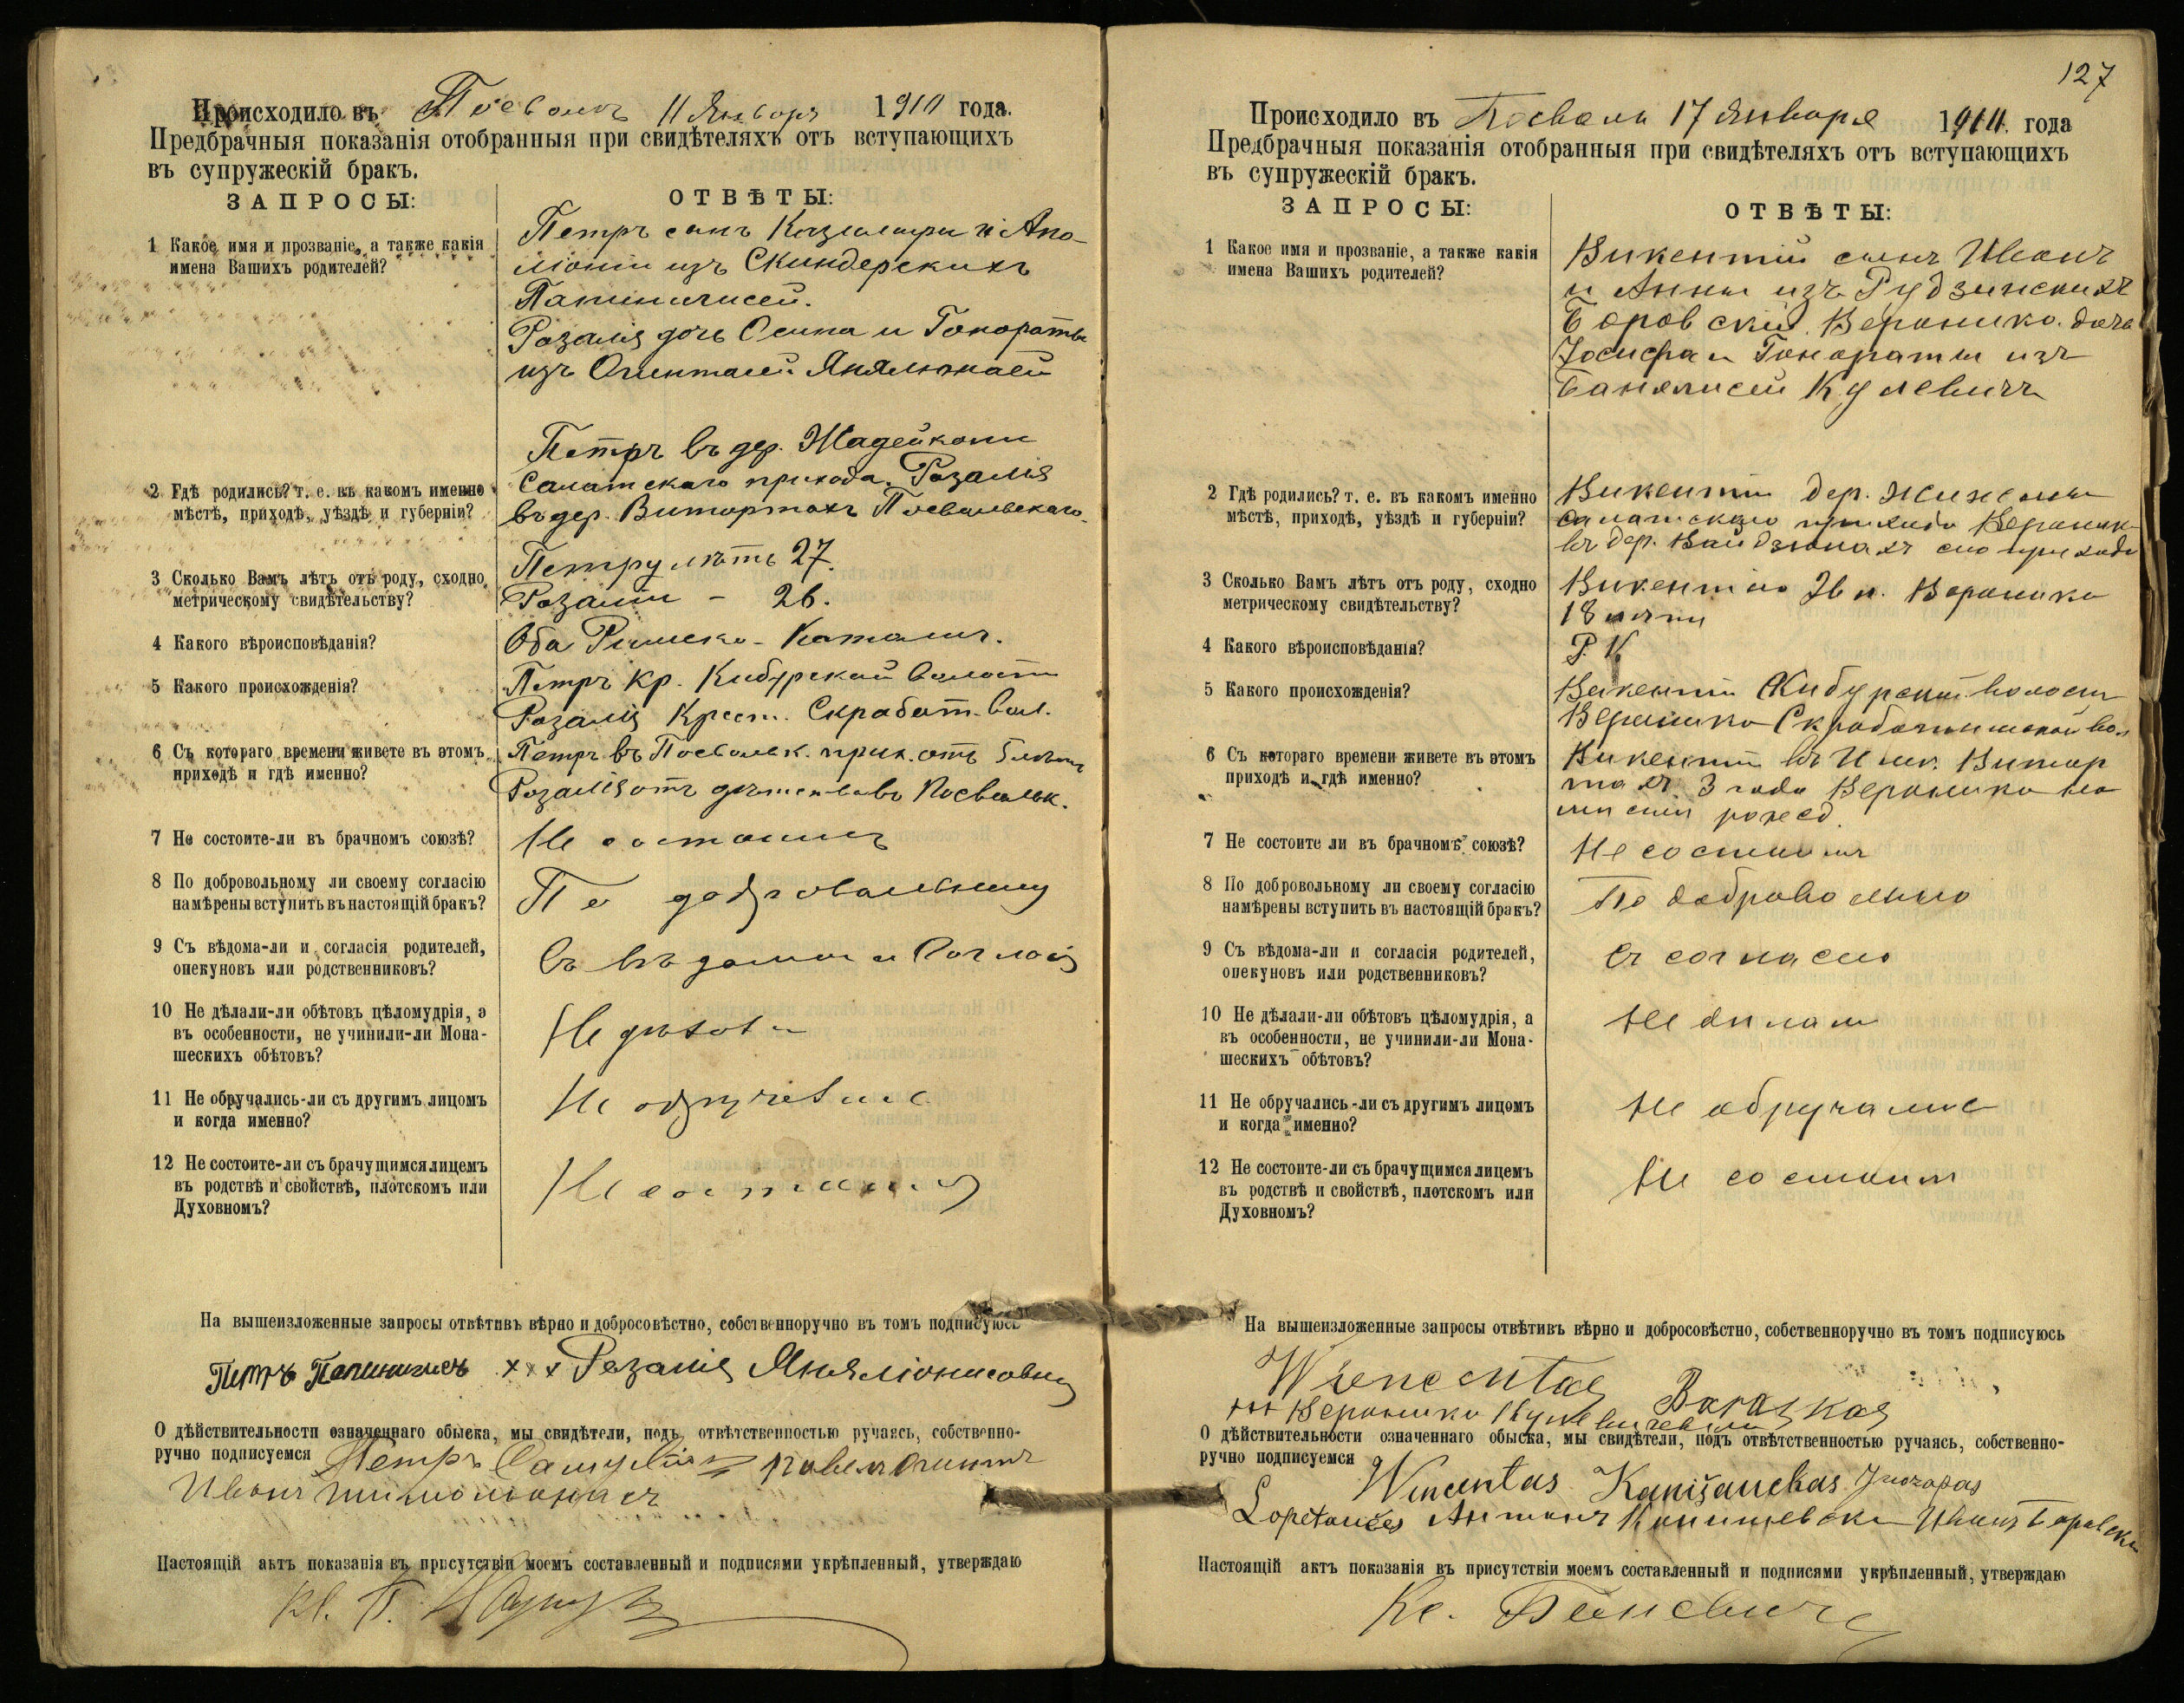 Происходило въ Посволѣ 11 Января 1911 года.
Предбрачныя показанія отобранныя при свидѣтеляхъ отъ вступающихъ
въ супружескій бракъ.
ЗАПРОСЫ:
ОТВѢТЫ:
1 Какое имя и прозваніе, а также какія
имена Вашихъ родителей?
Петръ сынъ Казимира и Апо-
лоніи изъ Скиндерскихъ
Розалія дочь Осипа и Гонораты
изъ
2 Гдѣ родились? т. е. въ какомъ именно
мѣстѣ, приходѣ, уѣздѣ и губерніи?
Петръ въ дер. Жадейкони
Салатскаго прихода. Розалія
въ дер. Витартахъ Посвольскаго
3 Сколько Вамъ лѣтъ отъ роду, сходно
метрическому свидѣтельству?
Петру лѣтъ 27.
Розаліи - 26.
4 Какого вѣроисповѣданія?
Оба Римско-Католич.
5 Какого происхожденія?
Петръ кр. Кибурской волости
Розалія Крест. Скработ. вол.
6 Съ котораго времени живете въ этомъ
приходѣ и гдѣ именно?
Петръ въ Посвольск. прих. отъ 5 лѣтъ
Розалія отъ дѣтства въ Посвольк.
7 Не состоите-ли въ брачномъ союзѣ?
Не состоимъ
8 По добровольному ли своему согласію
намѣрены вступить въ настоящій бракъ?
По добровольному
9 Съ вѣдома-ли и согласія родителей,
опекуновъ или родственниковъ?
Съ вѣдома и согласія
10 Не дѣлали-ли обѣтовъ цѣломудрія, а
въ особенности, не учинили-ли Мона-
шескихъ обѣтовъ?
Не дѣлали
11 Не обручались-ли съ другимъ лицомъ
и когда именно?
Не обручались
12 Не состоите-ли съ брачущимся лицемъ
въ родствѣ и свойствѣ, плотскомъ или
Духовномъ?
Не состоимъ
На вышеизложенные запросы отвѣтивъ вѣрно и добросовѣстно, собственноручно въ томъ подписуюсь
Петръ +++ Розалія
О дѣйствительности означеннаго обыска, мы свидѣтели, подъ отвѣтственностью ручаясь, собственно-
ручно подписуемся Петръ
Иванъ
Настоящій актъ показанія въ присутствіи моемъ составленный и подписями укрѣпленный, утверждаю
127
Происходило въ Посволѣ 17 Января 1911 года
Предбрачныя показанія отобранныя при свидѣтеляхъ отъ вступающихъ
въ супружескій бракъ.
ЗАПРОСЫ:
ОТВѢТЫ:
1 Какое имя и прозваніе, а также какія
имена Вашихъ родителей?
Викентій сынъ Ивана
и Анны изъ Рудзинскихъ
Боровскій. Вероника дочь
Іосифа и Гонораты изъ
Кулевичъ
2 Гдѣ родились? т. е. въ какомъ именно
мѣстѣ, приходѣ, уѣздѣ и губерніи?
Викентій дер.
Салатскаго прихода Вероника
въ дер.
3 Сколько Вамъ лѣтъ отъ роду, сходно
метрическому свидѣтельству?
Викентію 36 л. Вероника
18 лѣтъ
4 Какого вѣроисповѣданія?
Р. К
5 Какого происхожденія?
Викентій Кибурской волости
Вероника
6 Съ котораго времени живете въ этомъ
приходѣ и гдѣ именно?
Викентій въ Витар
тахъ 3 года Вероника
7 Не состоите ли въ брачномъ союзѣ?
Не состоимъ
8 По добровольному ли своему согласію
намѣрены вступить въ настоящій бракъ?
По добровольно
9 Съ вѣдома-ли и согласія родителей,
опекуновъ или родственниковъ?
Съ согласію
10 Не дѣлали-ли обѣтовъ цѣломудрія, а
въ особенности, не учинили-ли Мона-
шескихъ обѣтовъ?
Не дѣлали
11 Не обручались-ли съ другимъ лицомъ
и когда именно?
Не обручались
12 Не состоите-ли съ брачущимся лицемъ
въ родствѣ и свойствѣ, плотскомъ или
Духовномъ?
Не состоимъ
На вышеизложенные запросы отвѣтивъ вѣрно и добросовѣстно, собственноручно въ томъ подписуюсь
+++ Вероника
О дѣйствительности означеннаго обыска, мы свидѣтели, подъ отвѣтственностью ручаясь, собственно-
ручно подписуемся
Wincentas Juozapas
Антонъ Иванъ Боровски
Настоящій актъ показанія въ присутствіи моемъ составленный и подписями укрѣпленный, утверждаю
Кс.